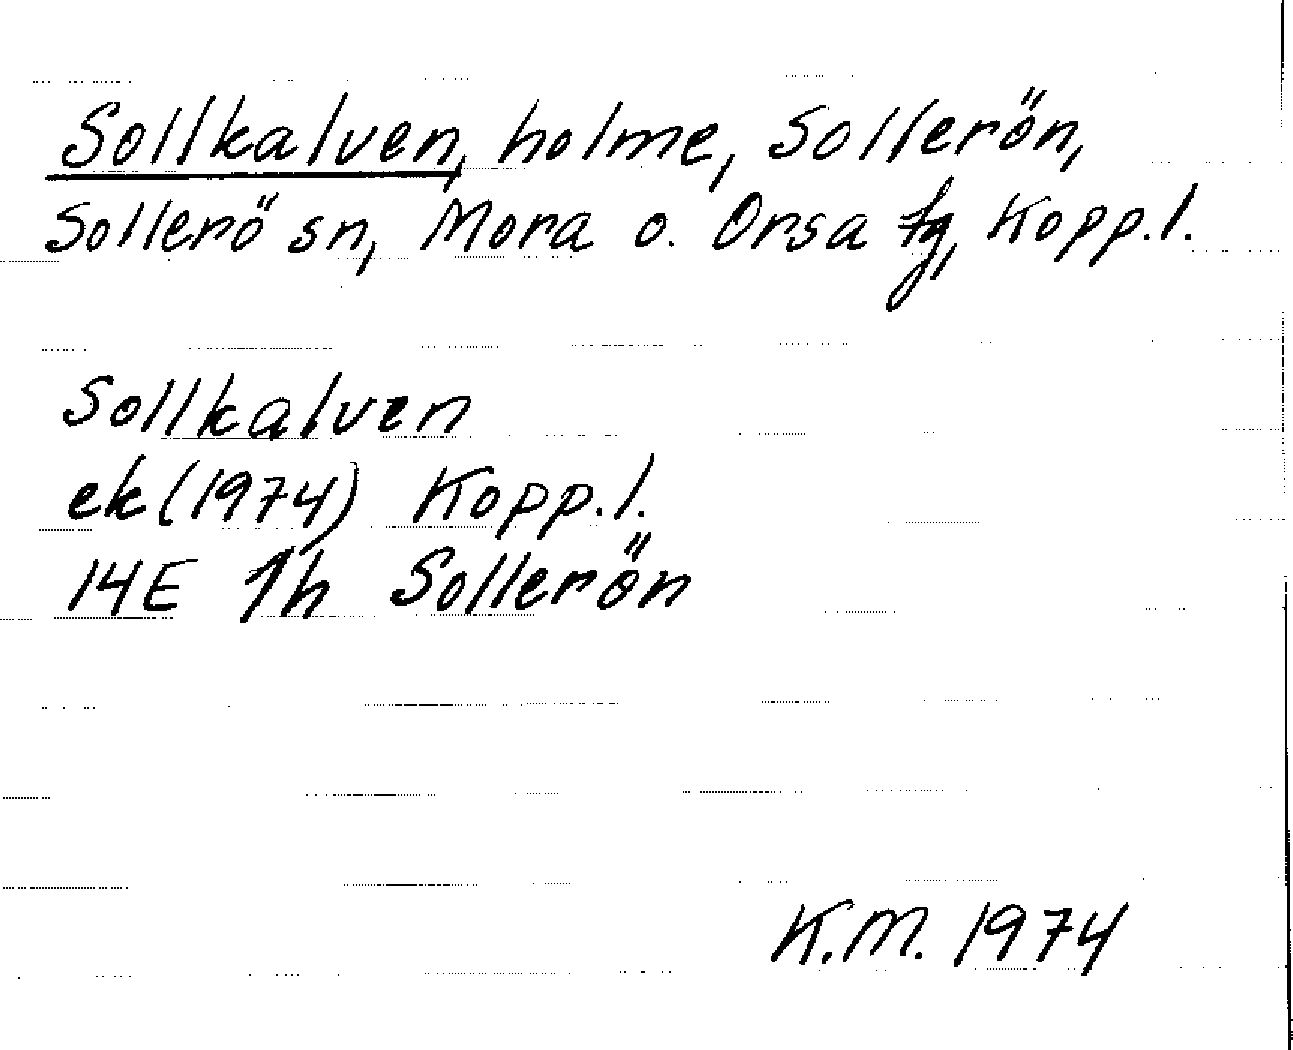 Sollkalven, holme, Sollerön,
Sollerö sn, Mora o. Orsa tg, Kopp.l.
Sollkalven
ek (1974) Kopp.l.
14E 1h Sollerön
K.M. 1974